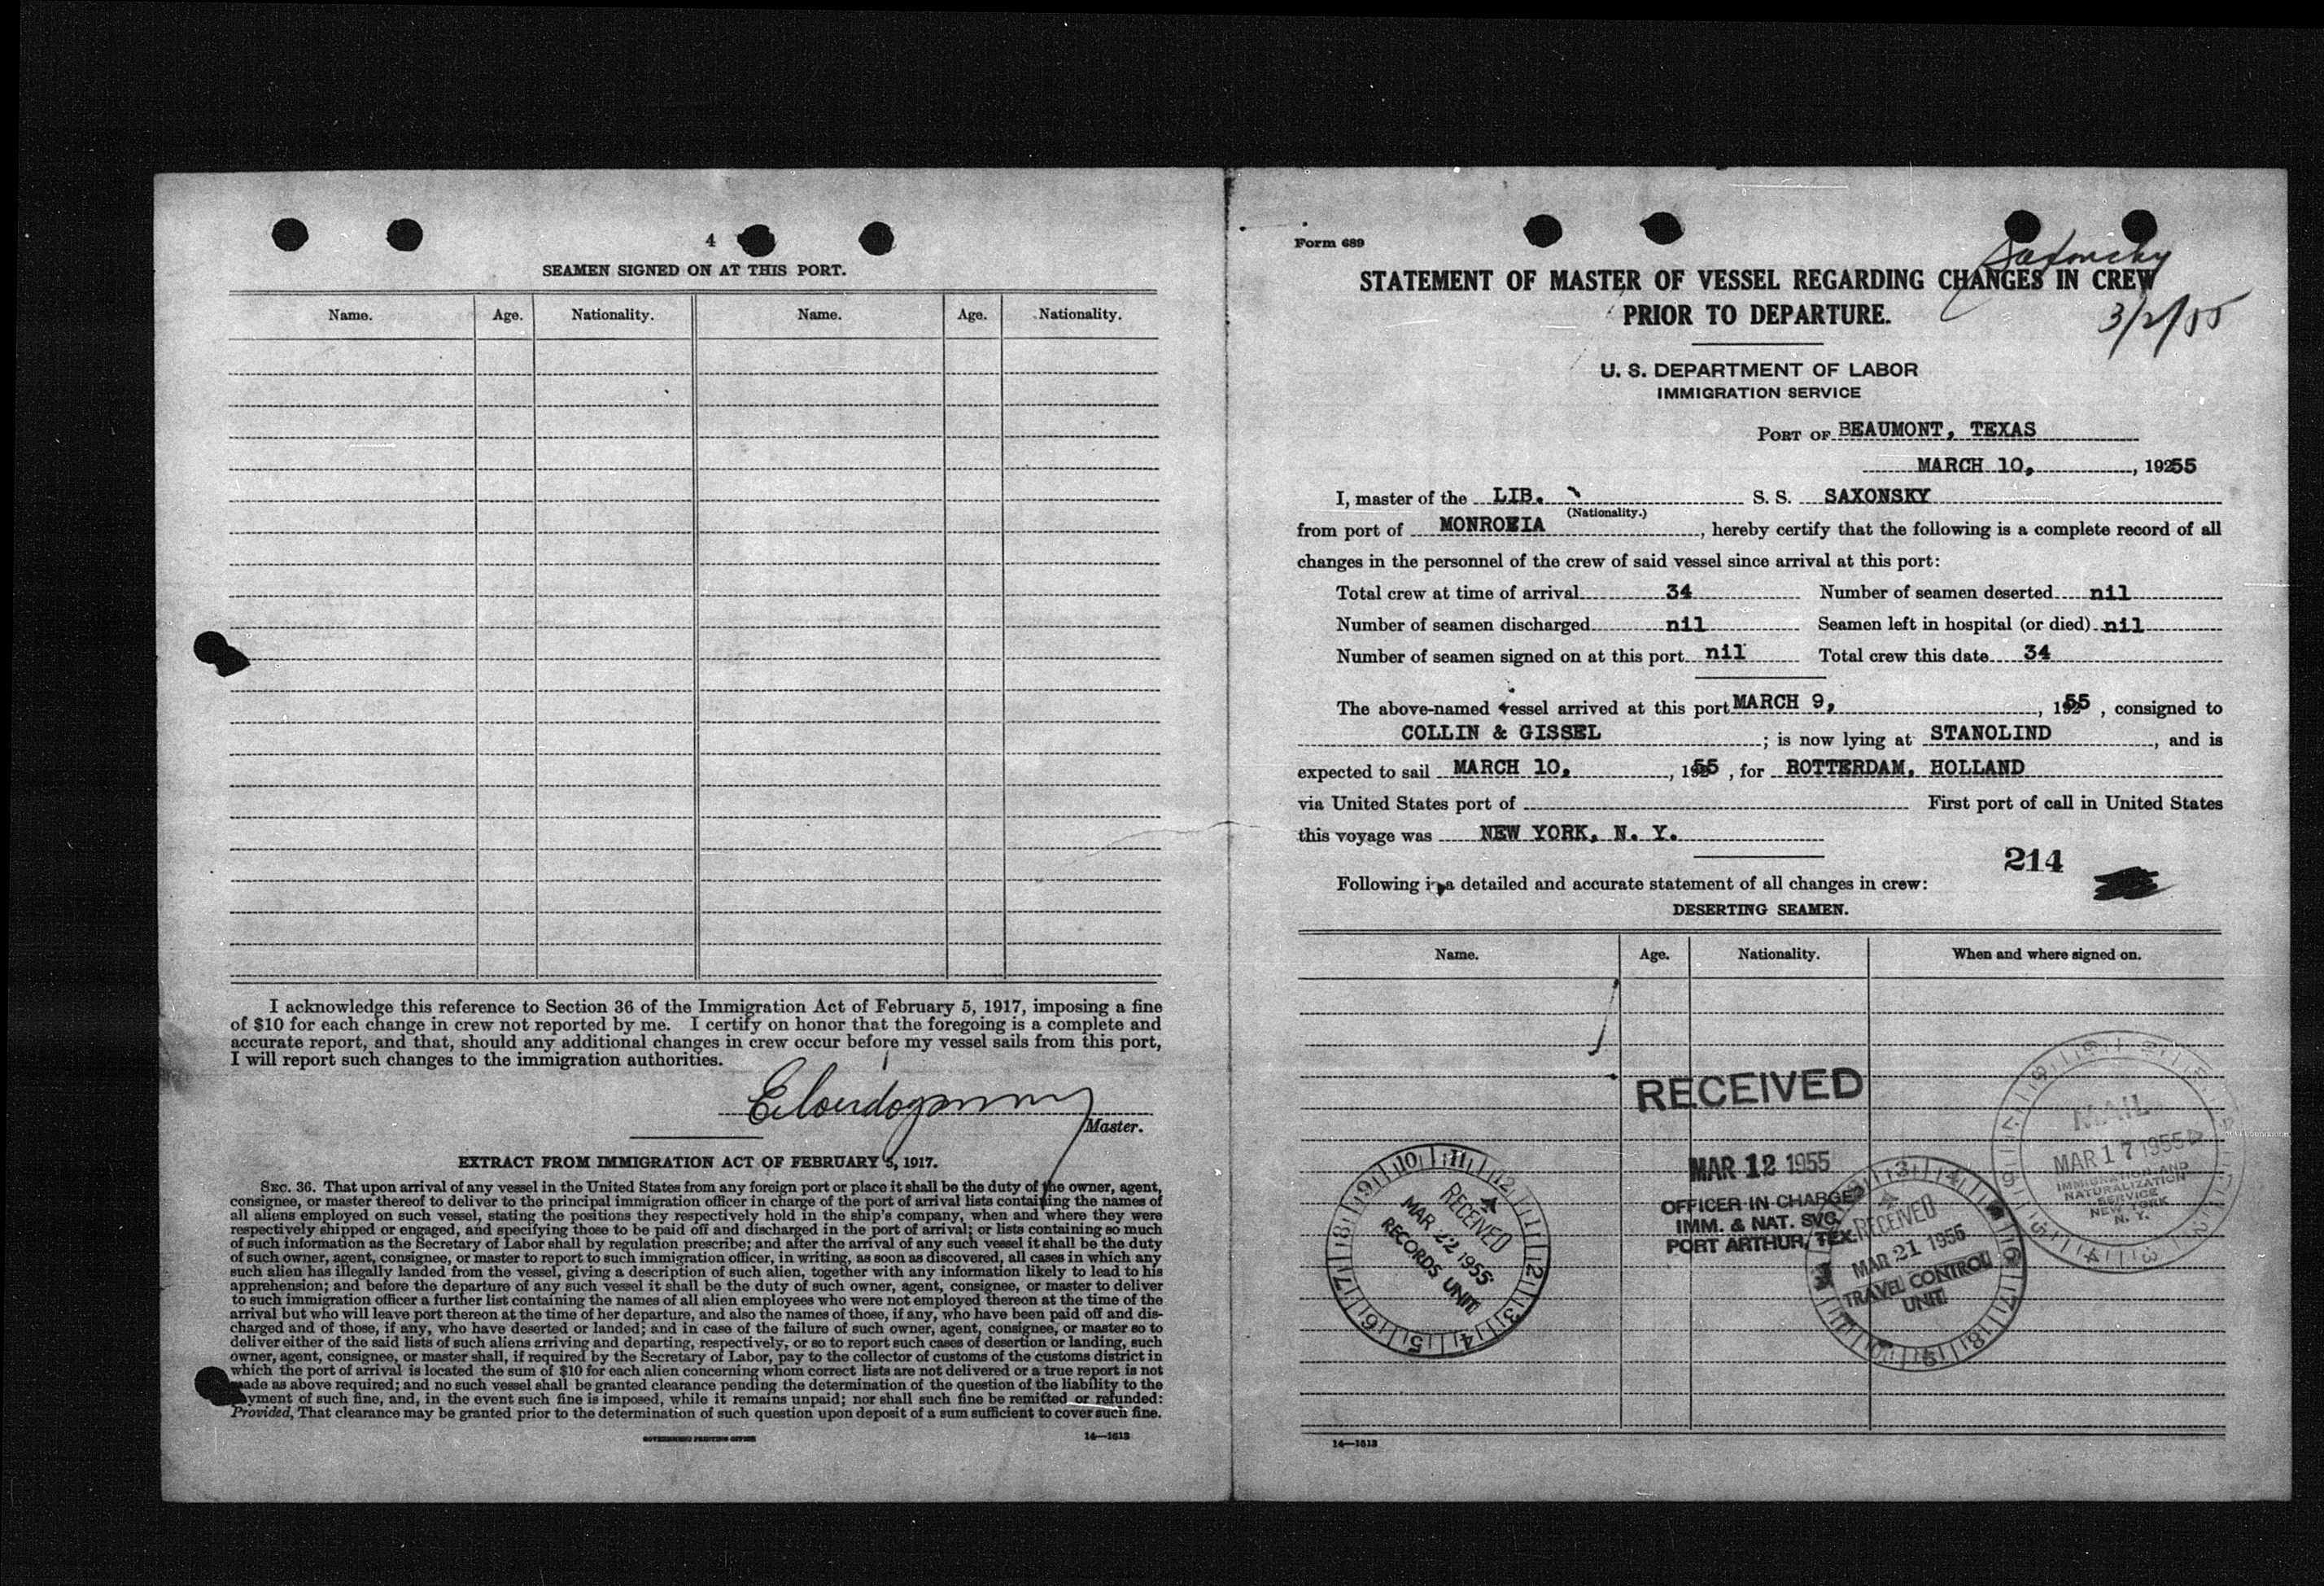 4
SEAMEN SIGNED ON AT THIS PORT.
Name. Age. Nationality. Name. Age. Nationality.
I acknowledge this reference to Section 36 of the Immigration Act of February 5, 1917, imposing a fine
of $10 for each change in crew not reported by me. I certify on honor that the foregoing is a complete and
accurate report, and that, should any additional changes in crew occur before my vessel sails from this port,
I will report such changes to the immigration authorities.
Master.
EXTRACT FROM IMMIGRATION ACT OF FEBRUARY 5, 1917.
SEC. 36. That upon arrival of any vessel in the United States from any foreign port or place it shall be the duty of the owner, agent,
consignee, or master thereof to deliver to the principal immigration officer in charge of the port of arrival lists containing the names of
all aliens employed on such vessel, stating the positions they respectively hold in the ship's company, when and where they were
respectively shipped or engaged, and specifying those to be paid off and discharged in the port of arrival; or lists containing so much
of such information as the Secretary of Labor shall by regulation prescribe; and after the arrival of any such vessel it shall be the duty
of such owner, agent, consignee, or master to report to such immigration officer, in writing, as soon as discovered, all cases in which any
such alien has illegally landed from the vessel, giving a description of such alien, together with any information likely to lead to his
apprehension; and before the departure of any such vessel it shall be the duty of such owner, agent, consignee, or master to deliver
to such immigration officer a further list containing the names of all alien employees who were not employed thereon at the time of the
arrival but who will leave port thereon at the time of her departure, and also the names of those, if any, who have been paid off and dis-
charged and of those, if any, who have deserted or landed; and in case of the failure of such owner, agent, consignee, or master so to
deliver either of the said lists of such aliens arriving and departing, respectively, or so to report such cases of desertion or landing, such
owner, agent, consignee, or master shall, if required by the Secretary of Labor, pay to the collector of customs of the customs district in
which the port of arrival is located the sum of $10 for each alien concerning whom correct lists are not delivered or a true report is not
made as above required; and no such vessel shall be granted clearance pending the determination of the question of the liability to the
payment of such fine, and, in the event such fine is imposed, while it remains unpaid; nor shall such fine be remitted or refunded:
Provided, That clearance may be granted prior to the determination of such question upon deposit of a sum sufficient to cover such fine.
GOVERNMENT PRINTING OFFICE 14—1613
Form 689
Saxonsky
STATEMENT OF MASTER OF VESSEL REGARDING CHANGES IN CREW
PRIOR TO DEPARTURE.
3/2/55
U. S. DEPARTMENT OF LABOR
IMMIGRATION SERVICE
PORT OF BEAUMONT, TEXAS
MARCH 10, , 19255
I, master of the LIB. S. S. SAXONSKY
(Nationality.)
from port of MONROEIA , hereby certify that the following is a complete record of all
changes in the personnel of the crew of said vessel since arrival at this port:
Total crew at time of arrival 34 Number of seamen deserted nil
Number of seamen discharged nil Seamen left in hospital (or died) nil
Number of seamen signed on at this port nil Total crew this date 34
The above-named vessel arrived at this port MARCH 9, , 1955 , consigned to
COLLIN & GISSEL ; is now lying at STANOLIND , and is
expected to sail MARCH 10, , 1955 , for ROTTERDAM, HOLLAND
via United States port of First port of call in United States
this voyage was NEW YORK, N. Y.
214
Following is a detailed and accurate statement of all changes in crew:
DESERTING SEAMEN.
Name. Age. Nationality. When and where signed on.
RECEIVED
MAR 12 1955
OFFICER IN CHARGE
IMM. & NAT. SVC.
PORT ARTHUR, TEX.
RECEIVED
MAR 22 1955
RECORDS UNIT
RECEIVED
MAR 21 1955
TRAVEL CONTROL
UNIT
MAIL
MAR 17 1955
IMMIGRATION AND
NATURALIZATION
SERVICE
NEW YORK
N. Y.
14—1613